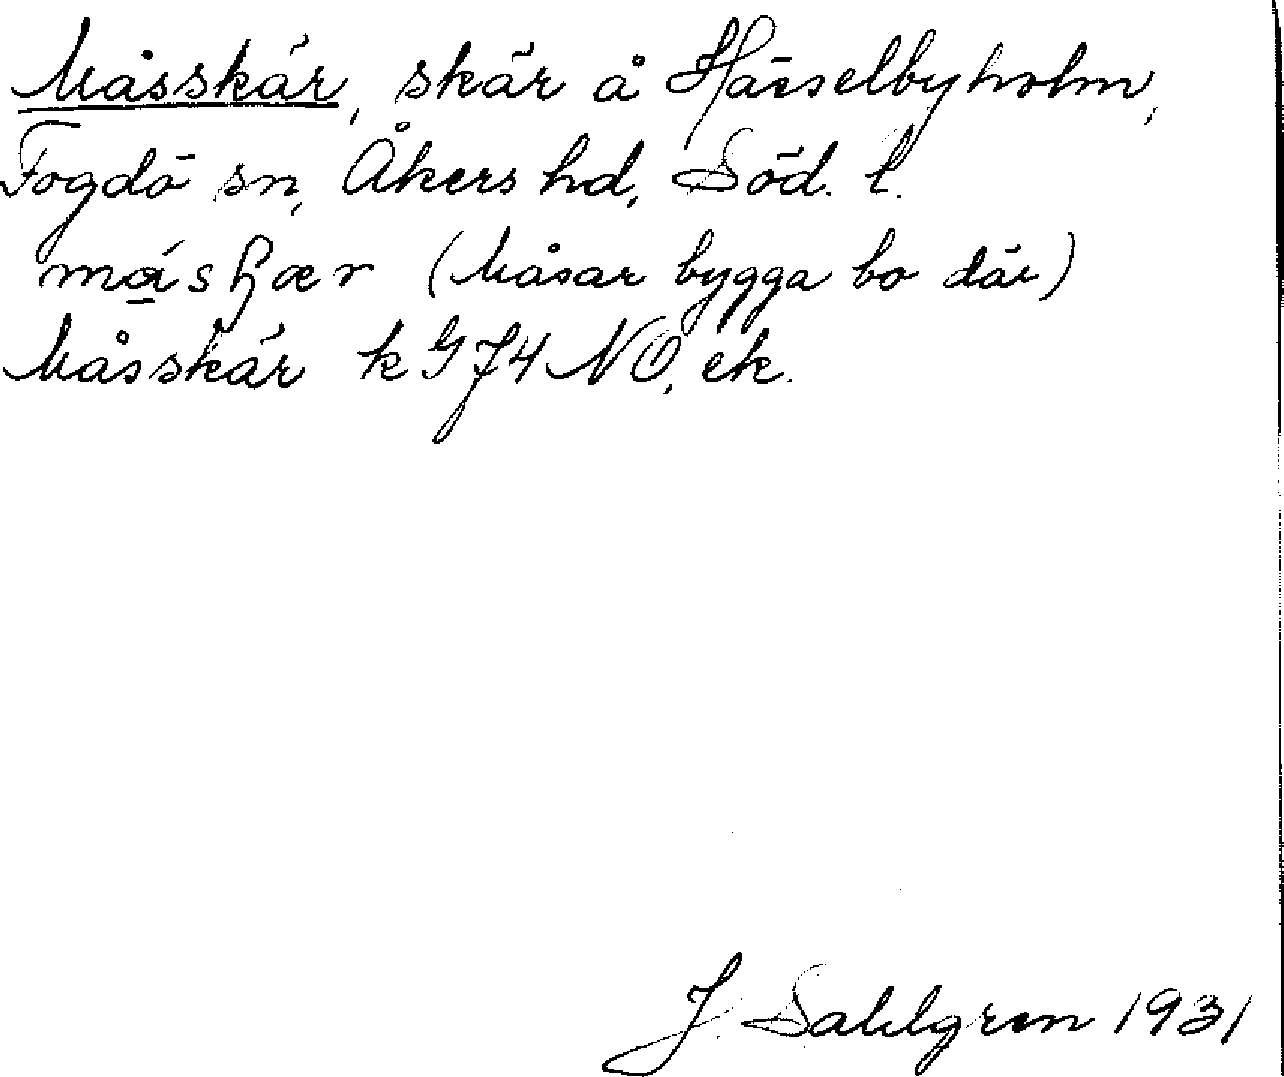 Måsskär, skär å Hässelbyholm,
Fogdö sn, Åkers hd, Söd. l.
(Måsar bygga bo där)
Måsskär k G74 NO, ek.
J. Sahlgren 1931